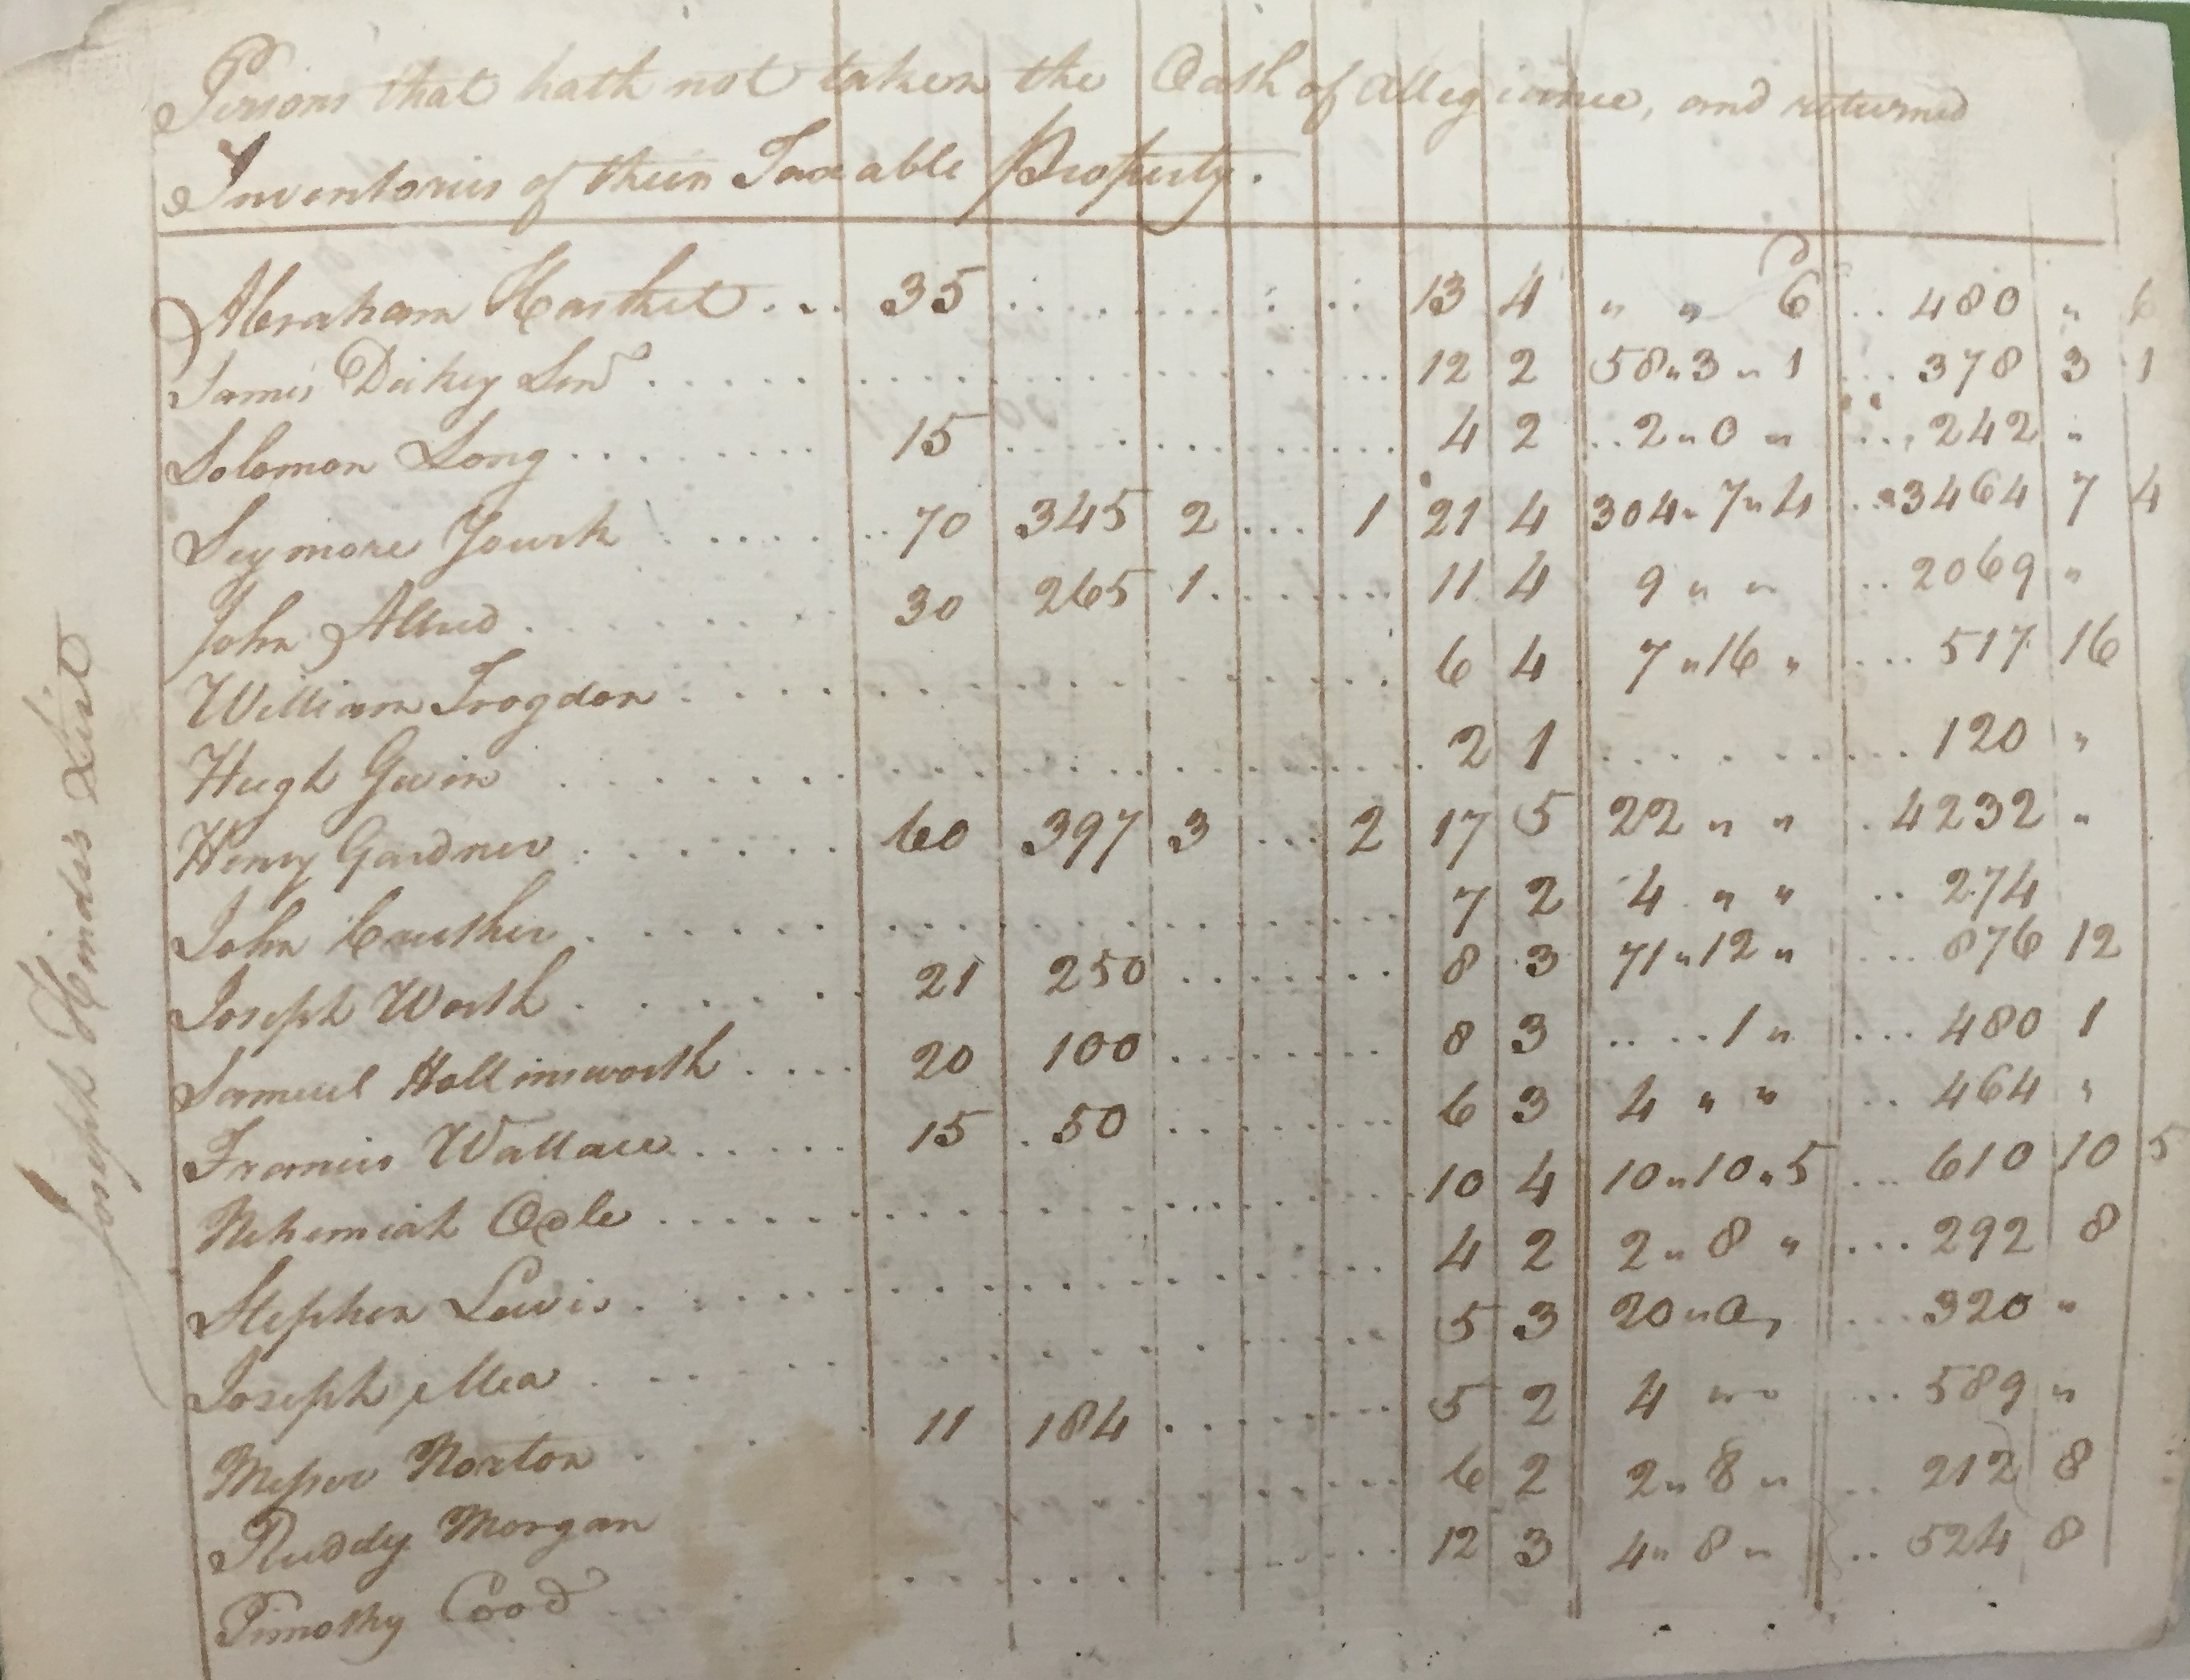 Persons that hath not taken the Oath of Allegiance, and returned
Inventories of their Taxable Property.
Abraham Hasket ... 35 ... 13 4 " " 6 .. 480 " 6
James Dickey Senr ... 12 2 58 " 3 " 1 ... 378 3 1
Solomon Long ... 15 ... 4 2 .. 2 " 0 " ... 242 "
Seymore Yourk ... 70 345 2 ... 1 21 4 304 " 7 " 4 .. 3464 7 4
John Allred ... 30 265 1 ... 11 4 9 " " .. 2069 "
William Trogdon ... 6 4 7 " 16 " ... 517 16
Hugh Gwin ... 2 1 ... 120 "
Henry Gardner ... 60 397 3 ... 2 17 5 22 " " . 4232 "
John Crusher ... 7 2 4 " " .. 274
Joseph Worth ... 21 250 ... 8 3 71 " 12 " ... 876 12
Samuel Hollinsworth ... 20 100 ... 8 3 .. .. 1 " ... 480 1
Francis Wallace ... 15 . 50 ... 6 3 4 " " .. 464 "
Nehemiah Odle ... 10 4 10 " 10 " 5 ... 610 10 5
Stephen Lewis ... 4 2 2 " 8 " ... 292 8
Joseph Mea ... 5 3 20 " 0 , ... 320 "
Messer Norton ... 11 184 ... 5 2 4 " " .. 589 "
Ruddy Morgan ... 6 2 2 " 8 " .. 212 8
Timothy Cood ... 12 3 4 " 8 " .. 524 8
Joseph Hinds's List